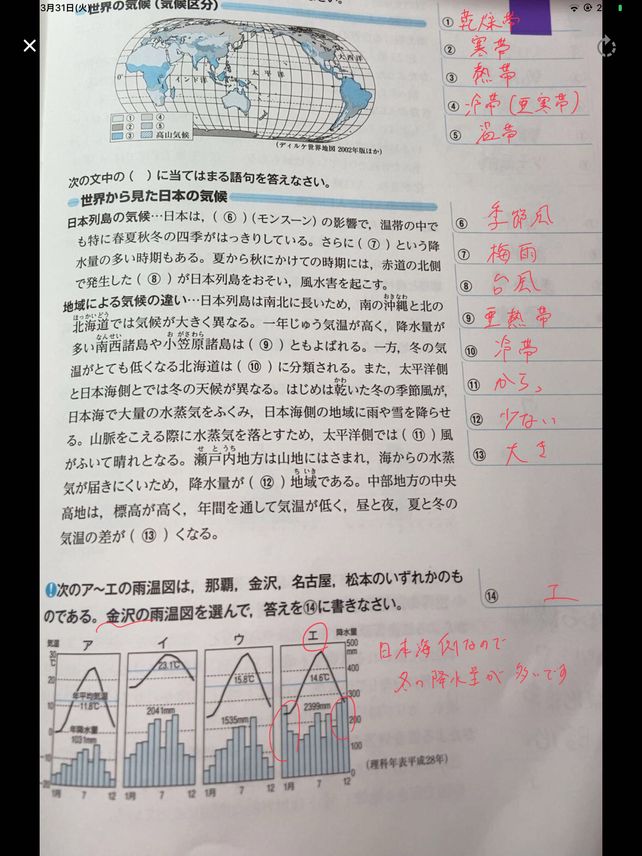 3月31日(火)
世界の気候(気候区分)
大西洋
インド洋
太平洋
0°
① ④
② ⑤
③ 高山気候
(ディルケ世界地図 2002年版ほか)
① 乾燥帯
② 寒帯
③ 熱帯
④ 冷帯(亜寒帯)
⑤ 温帯
次の文中の( )に当てはまる語句を答えなさい。
世界から見た日本の気候
日本列島の気候…日本は,(⑥)(モンスーン)の影響で,温帯の中で
も特に春夏秋冬の四季がはっきりしている。さらに(⑦)という降
水量の多い時期もある。夏から秋にかけての時期には,赤道の北側
で発生した(⑧)が日本列島をおそい,風水害を起こす。
地域による気候の違い…日本列島は南北に長いため,南の沖縄と北の
北海道では気候が大きく異なる。一年じゅう気温が高く,降水量が
多い南西諸島や小笠原諸島は(⑨)ともよばれる。一方,冬の気
温がとても低くなる北海道は(⑩)に分類される。また,太平洋側
と日本海側とでは冬の天候が異なる。はじめは乾いた冬の季節風が,
日本海で大量の水蒸気をふくみ,日本海側の地域に雨や雪を降らせ
る。山脈をこえる際に水蒸気を落とすため,太平洋側では(⑪)風
がふいて晴れとなる。瀬戸内地方は山地にはさまれ,海からの水蒸
気が届きにくいため,降水量が(⑫)地域である。中部地方の中央
高地は,標高が高く,年間を通して気温が低く,昼と夜,夏と冬の
気温の差が(⑬)くなる。
⑥ 季節風
⑦ 梅雨
⑧ 台風
⑨ 亜熱帯
⑩ 冷帯
⑪ からっ
⑫ 少ない
⑬ 大き
次のア〜エの雨温図は,那覇,金沢,名古屋,松本のいずれかのも
のである。金沢の雨温図を選んで,答えを⑭に書きなさい。
⑭ エ
気温 ア イ ウ エ 降水量
30℃ 500mm
20 400
10 300
0 200
-10 100
-20 0
年平均気温 11.8℃
年降水量 1031mm
23.1℃
2041mm
15.8℃
1535mm
14.6℃
2399mm
1月 7 12 1月 7 12 1月 7 12 1月 7 12
(理科年表平成28年)
日本海側なので
冬の降水量が多いです